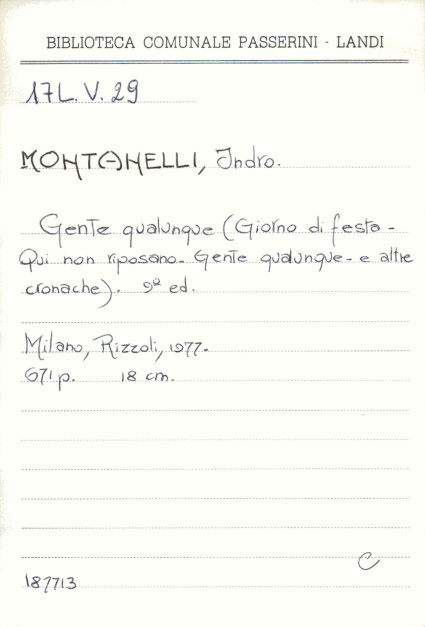 BIBLIOTECA COMUNALE PASSERINI - LANDI
17L. V. 29
MONTANELLI, Indro.
Gente qualunque (Giorno di festa -
Qui non riposano - Gente qualunque - e altre
cronache). 9ª ed.
Milano, Rizzoli, 1977.
671 p. 18 cm.
C
187713